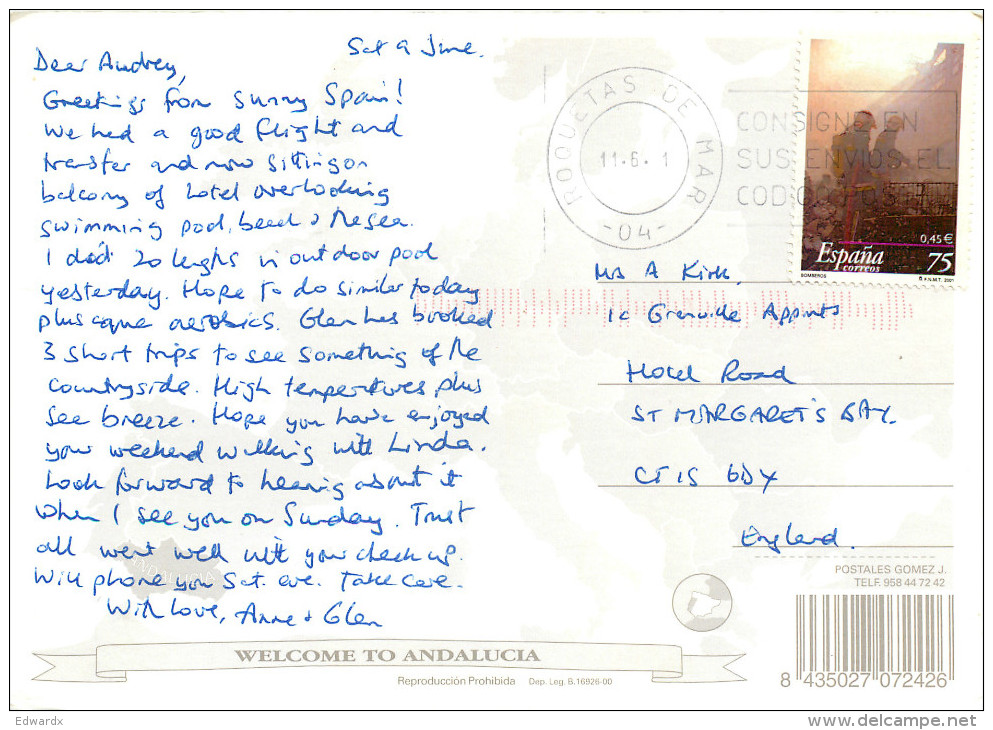 Sat 9 June.
Dear Audrey,
Greetings from sunny Spain!
We had a good flight and
transfer and now sitting on
balcony of hotel overlooking
swimming pool, beach & the sea.
I did 20 lenghts in outdoor pool
yesterday. Hope to do similar today
plus aqua aerobics. Glen has booked
3 short trips to see something of the
countryside. High temperatures plus
sea breeze. Hope you have enjoyed
your weekend walking with Linda.
Look forward to hearing about it
when I see you on Sunday. Trust
all went well with your check up.
Will phone you Sat. eve. Take care.
With love, Anne & Glen
ROQUETAS DE MAR
11-6- 1
-04-
CONSIGNE EN
SUS ENVIOS EL
0,45€
España
correos
75
BOMBEROS
F.N.M.T. 2001
Mrs A Kirk,
1c Grenville Appmts
Hotel Road
ST MARGARET'S BAY.
CT15 6DX
England.
ANDALUCIA
POSTALES GOMEZ J.
TELF. 958 44 72 42
WELCOME TO ANDALUCIA
Reproducción Prohibida Dep. Leg. B.16926-00
8 435027 072426
Edwardx
www.delcampe.net